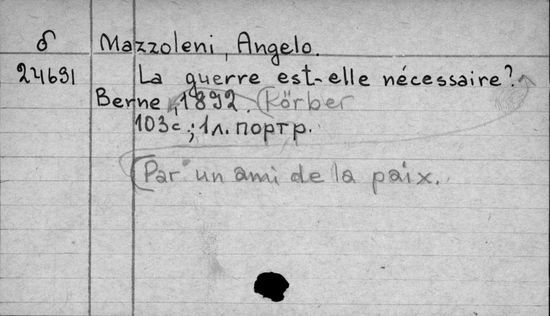 б Mazzoleni, Angelo.
24691 La guerre est-elle nécessaire?
Berne, 1892. Körber
103с.; 1л. портр.
Par un ami de la paix.